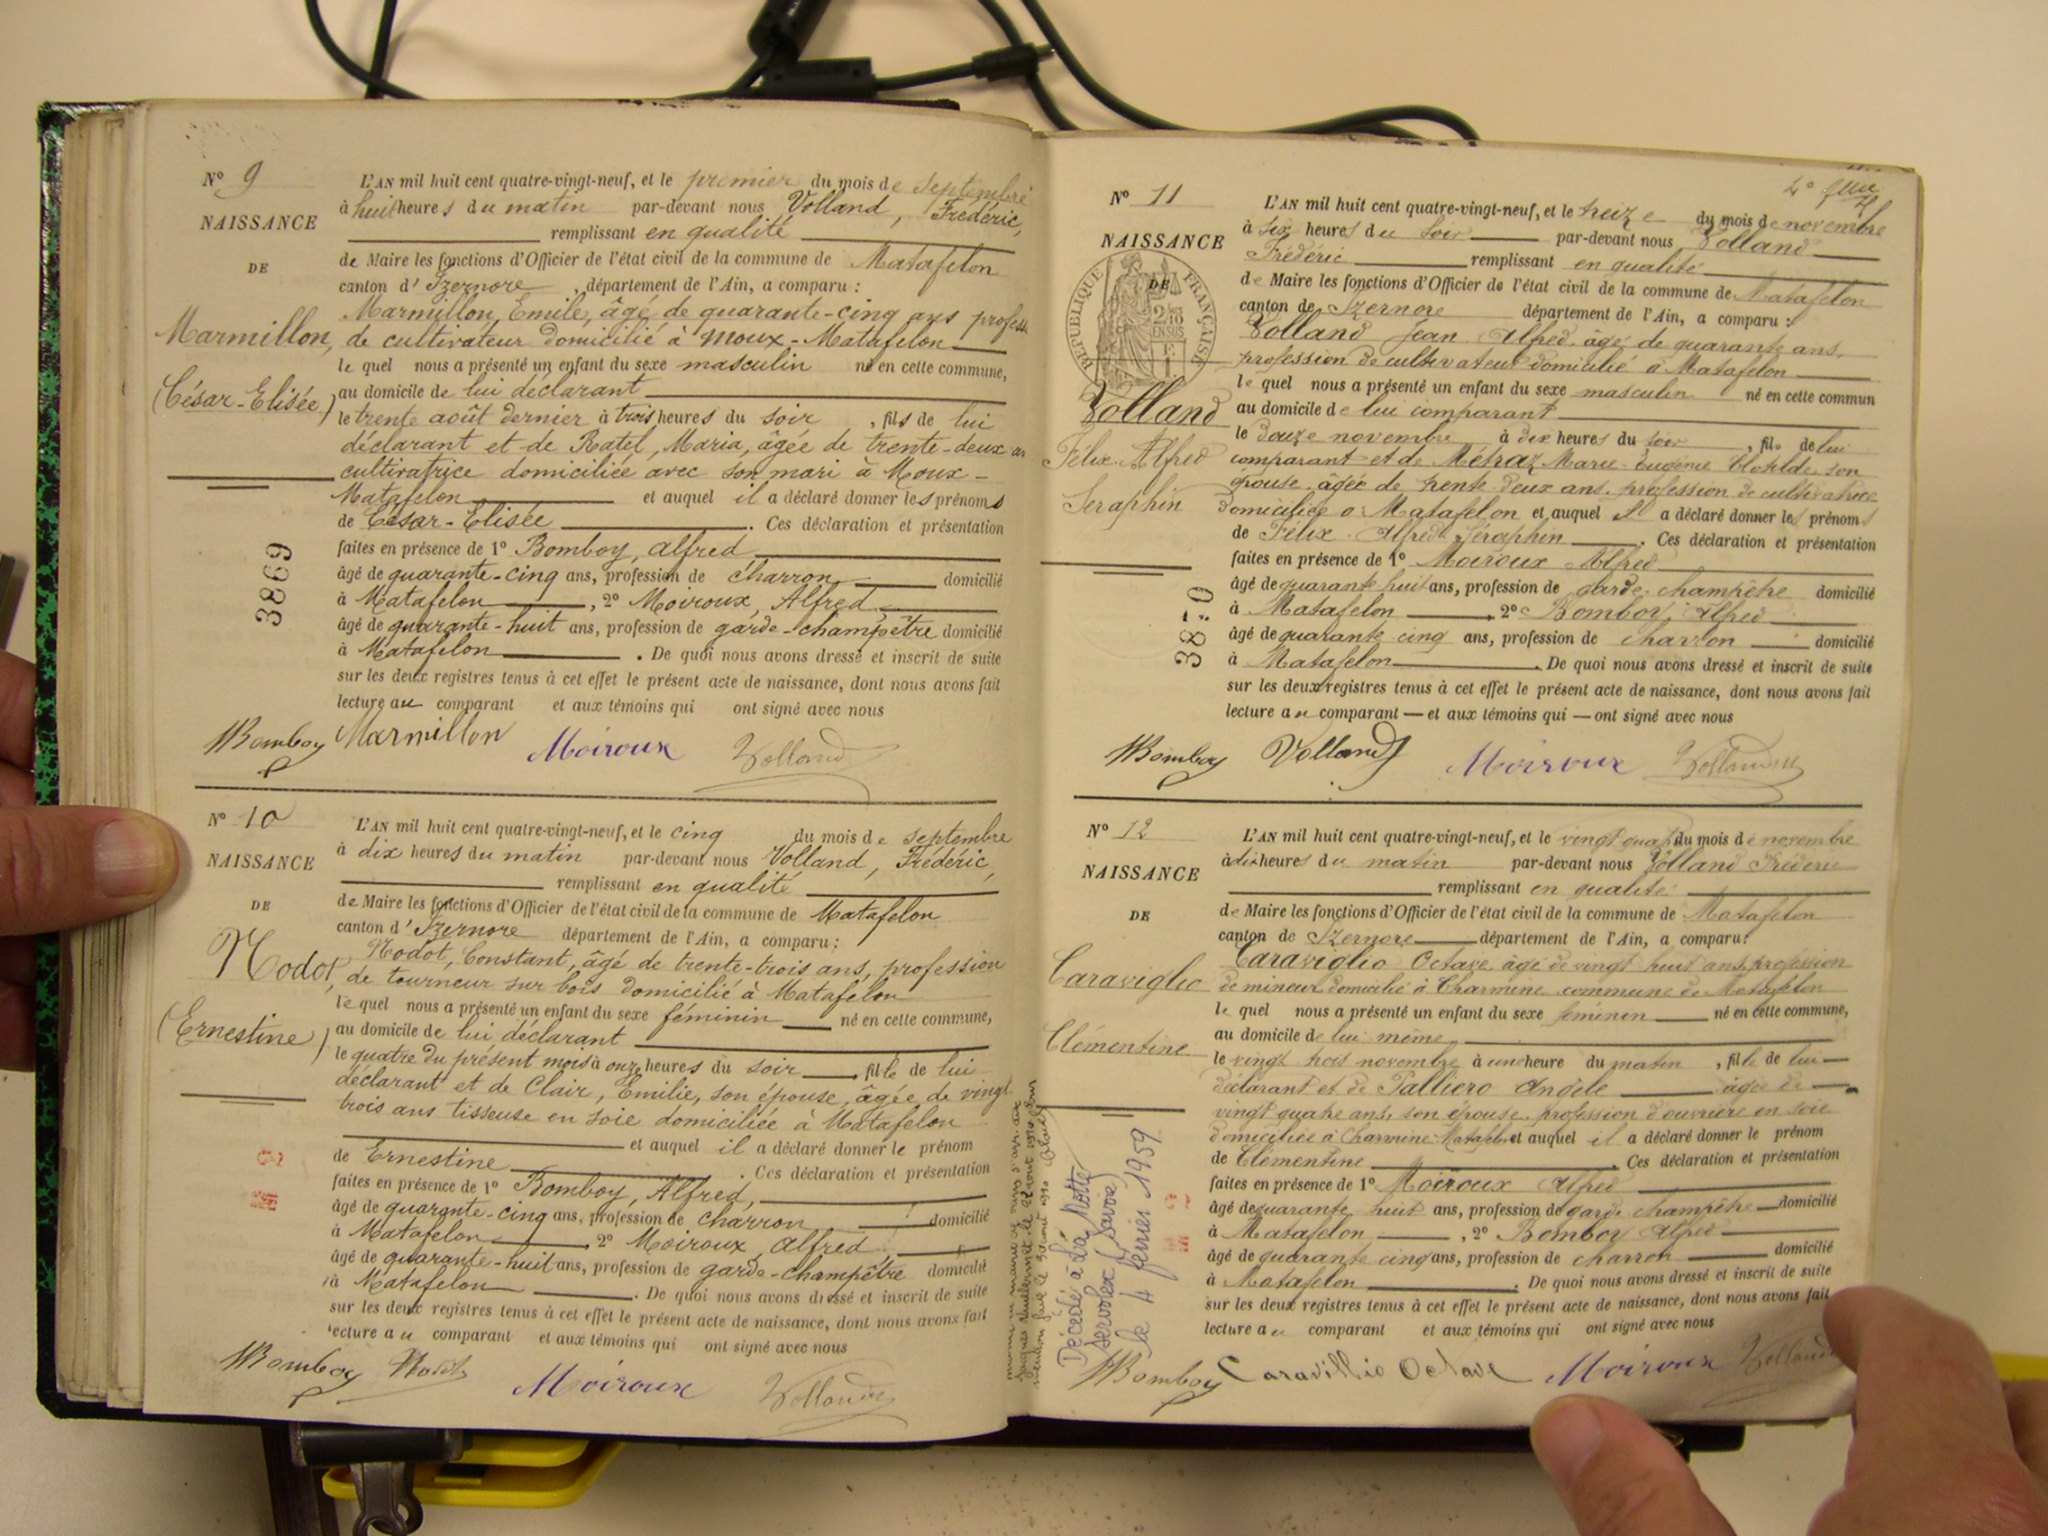 Nº 9
NAISSANCE
DE
Marmillon,
(César-Elisée)
3869
L'AN mil huit cent quatre-vingt-neuf, et le premier du mois de septembre
à huit heures du matin par-devant nous Volland, Frédéric,
remplissant en qualité
de Maire les fonctions d'Officier de l'état civil de la commune de Matafelon
canton d'Izernore, département de l'Ain, a comparu :
Marmillon, Emile, âgé de quarante-cinq ans profess
de cultivateur domicilié à Moux-Matafelon
lequel nous a présenté un enfant du sexe masculin né en cette commune,
au domicile de lui déclarant
le trente août dernier à trois heures du soir, fils de lui
déclarant et de Ratel, Maria, âgée de trente-deux an
cultivatrice domiciliée avec son mari à Moux-
Matafelon et auquel il a déclaré donner les prénoms
de César-Elisée. Ces déclaration et présentation
faites en présence de 1º Bomboy, Alfred
âgé de quarante-cinq ans, profession de charron domicilié
à Matafelon, 2º Moiroux, Alfred
âgé de quarante-huit ans, profession de garde-champêtre domicilié
à Matafelon. De quoi nous avons dressé et inscrit de suite
sur les deux registres tenus à cet effet le présent acte de naissance, dont nous avons fait
lecture au comparant et aux témoins qui ont signé avec nous
Bomboy Marmillon Moiroux Volland
Nº 10
NAISSANCE
DE
Nodot,
(Ernestine)
L'AN mil huit cent quatre-vingt-neuf, et le cinq du mois de septembre
à dix heures du matin par-devant nous Volland, Frédéric,
remplissant en qualité
de Maire les fonctions d'Officier de l'état civil de la commune de Matafelon
canton d'Izernore département de l'Ain, a comparu :
Nodot, Constant, âgé de trente-trois ans, profession
de tourneur sur bois domicilié à Matafelon
lequel nous a présenté un enfant du sexe féminin né en cette commune,
au domicile de lui déclarant
le quatre du présent mois à onze heures du soir, fille de lui
déclarant et de Clair, Emilie, son épouse, âgée de vingt
trois ans tisseuse en soie domiciliée à Matafelon
et auquel il a déclaré donner le prénom
de Ernestine. Ces déclaration et présentation
faites en présence de 1º Bomboy, Alfred,
âgé de quarante-cinq ans, profession de charron domicilié
à Matafelon, 2º Moiroux, Alfred,
âgé de quarante-huit ans, profession de garde-champêtre domicilié
à Matafelon. De quoi nous avons dressé et inscrit de suite
sur les deux registres tenus à cet effet le présent acte de naissance, dont nous avons fait
lecture au comparant et aux témoins qui ont signé avec nous
Bomboy Nodot Moiroux Volland
Nº 11
NAISSANCE
DE
RÉPUBLIQUE FRANÇAISE
Volland
Félix Alfred
Séraphin
L'AN mil huit cent quatre-vingt-neuf, et le treize du mois de novembre
à six heures du soir par-devant nous Volland
Frédéric remplissant en qualité
de Maire les fonctions d'Officier de l'état civil de la commune de Matafelon
canton de Izernore département de l'Ain, a comparu :
Volland Jean Alfred, âgé de quarante ans,
profession de cultivateur domicilié à Matafelon
lequel nous a présenté un enfant du sexe masculin né en cette commun
au domicile de lui comparant
le douze novembre à dix heures du soir, fils de lui
comparant et de Métraz Marie Eugénie Clotilde son
épouse, âgée de trente deux ans, profession de cultivatrice
domiciliée à Matafelon et auquel il a déclaré donner les prénoms
de Félix Alfred Séraphin. Ces déclaration et présentation
faites en présence de 1º Moiroux Alfred
âgé de quarante huit ans, profession de garde champêtre domicilié
à Matafelon, 2º Bomboy Alfred
âgé de quarante cinq ans, profession de charron domicilié
à Matafelon. De quoi nous avons dressé et inscrit de suite
sur les deux registres tenus à cet effet le présent acte de naissance, dont nous avons fait
lecture au comparant — et aux témoins qui — ont signé avec nous
Bomboy Volland Moiroux Volland
Nº 12
NAISSANCE
DE
Caraviglio
Clémentine
Décédé à La Motte
Servolex (Savoie)
le 4 février 1959
L'AN mil huit cent quatre-vingt-neuf, et le vingt quatre du mois de novembre
à dix heures du matin par-devant nous Volland Fréderic
remplissant en qualité
de Maire les fonctions d'Officier de l'état civil de la commune de Matafelon
canton de Izernore département de l'Ain, a comparu :
Caraviglio Octave, âgé de vingt huit ans, profession
de mineur domicilié à Charmine commune de Matafelon
lequel nous a présenté un enfant du sexe féminin né en cette commune,
au domicile de lui même
le vingt trois novembre à une heure du matin, fille de lui
déclarant et de Palliero Angèle âgée de
vingt quatre ans, son épouse, profession d'ouvrière en soie
domiciliée à Charmine-Matafelon et auquel il a déclaré donner le prénom
de Clémentine. Ces déclaration et présentation
faites en présence de 1º Moiroux Alfred
âgé de quarante huit ans, profession de garde champêtre domicilié
à Matafelon, 2º Bomboy Alfred
âgé de quarante cinq ans, profession de charron domicilié
à Matafelon. De quoi nous avons dressé et inscrit de suite
sur les deux registres tenus à cet effet le présent acte de naissance, dont nous avons fait
lecture au comparant et aux témoins qui ont signé avec nous
Bomboy Caravillio Octave Moiroux Volland